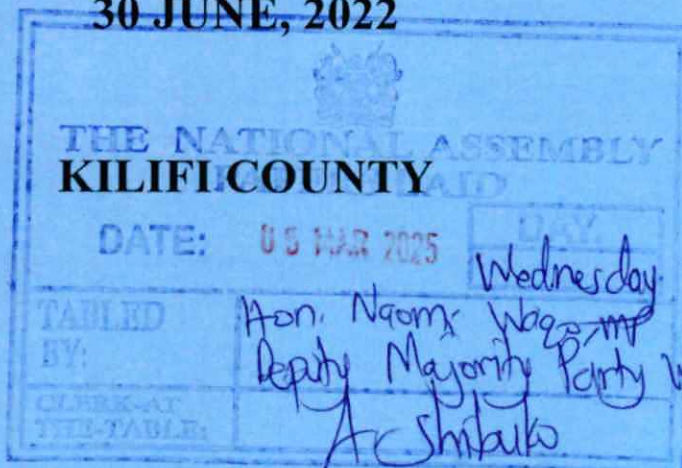 30 JUNE, 2022
THE NATIONAL ASSEMBLY
KILIFI COUNTY
PAPERS LAID
DATE: 05 MAR 2025
DAY.
Wednesday
TABLED BY:
Hon. Naomi Waqo, MP
Deputy Majority Party W
CLERK-AT THE-TABLE:
A Shibuko